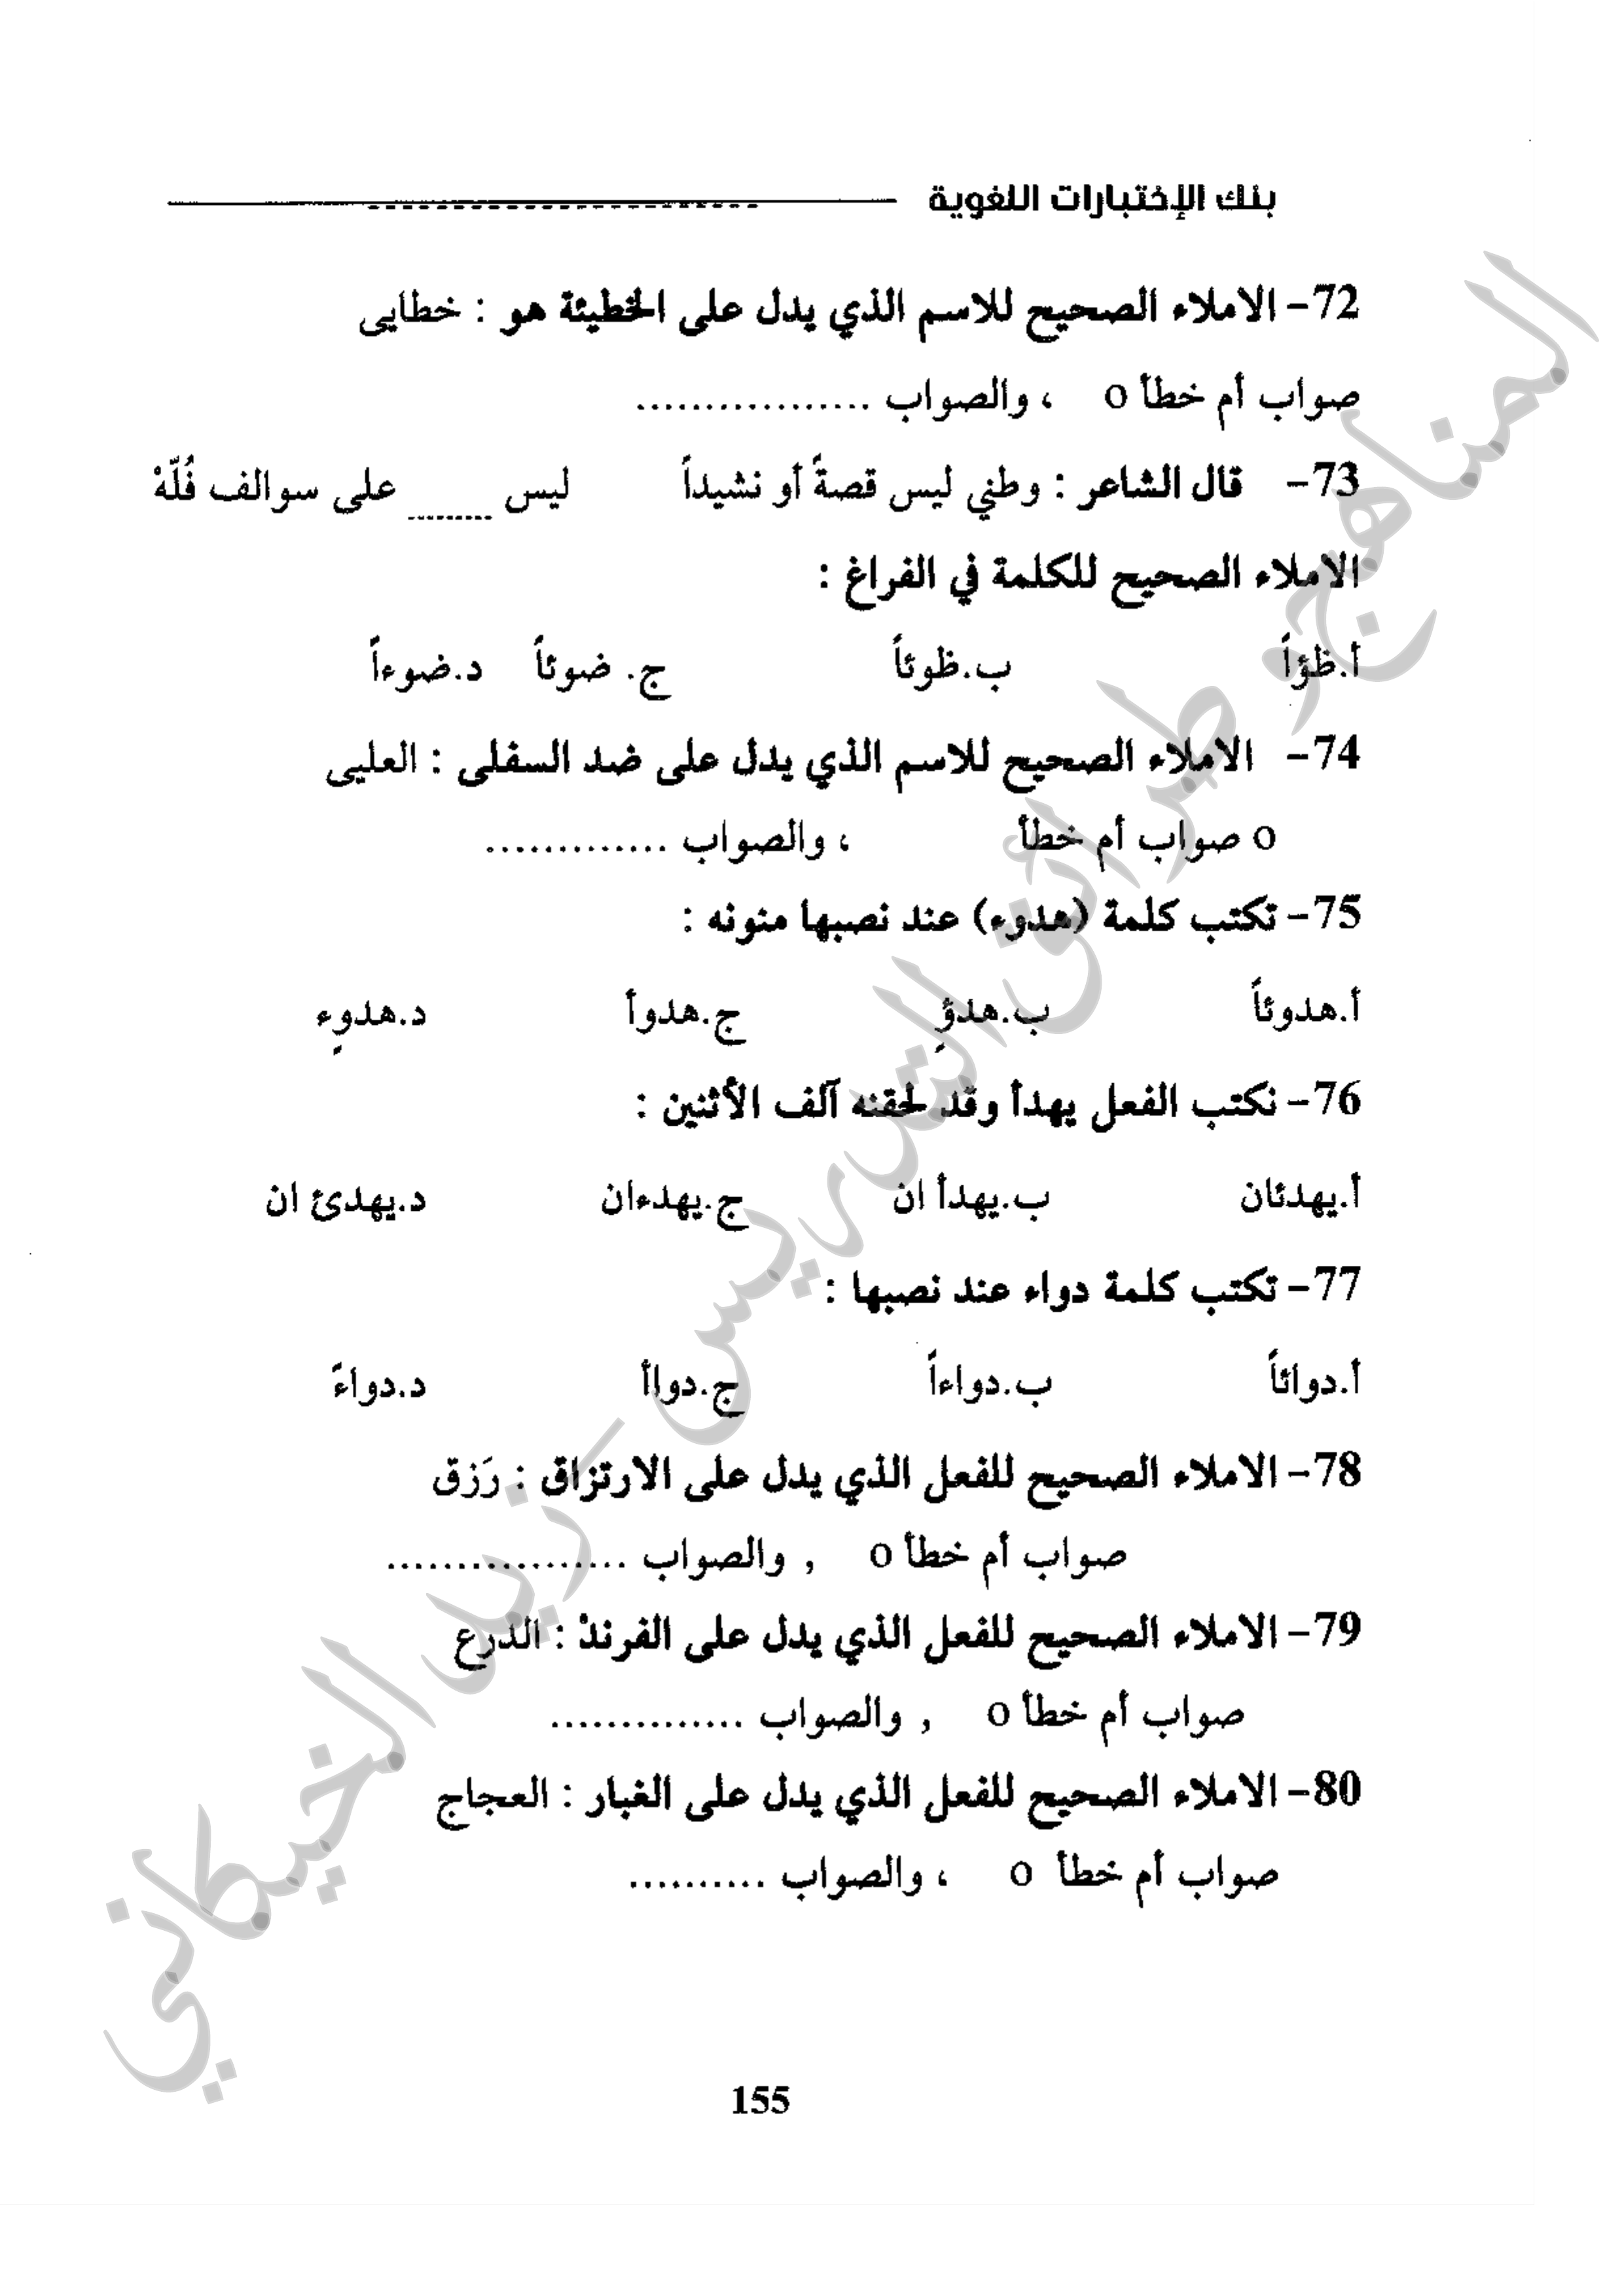 بنك الإختبارات اللغوية
72- الاملاء الصحيح للاسم الذي يدل على الخطيئة هو : خطايى
صواب أم خطأ o ، والصواب .................
73- قال الشاعر : وطني ليس قصةً أو نشيداً ليس -------- على سوالف فُلّهْ
الاملاء الصحيح للكلمة في الفراغ :
أ.ظؤاً ب.ظوئاً ج. ضوئاً د.ضوءاً
74- الاملاء الصحيح للاسم الذي يدل على ضد السفلى : العليى
o صواب أم خطأ ، والصواب .............
75- تكتب كلمة (هدوء) عند نصبها منونه :
أ.هدوئاً ب.هدؤٍ ج.هدوأ د.هدوءٍ
76- نكتب الفعل يهدأ وقد لحقنه آلف الأثنين :
أ.يهدئان ب.يهدأ ان ج.يهدءان د.يهدئ ان
77- تكتب كلمة دواء عند نصبها :
أ.دوائاً ب.دواءاً ج.دواأ د.دواءً
78- الاملاء الصحيح للفعل الذي يدل على الارتزاق : رَزق
صواب أم خطأ o , والصواب .................
79- الاملاء الصحيح للفعل الذي يدل على الفرندْ : الدرع
صواب أم خطأ o , والصواب ..............
80- الاملاء الصحيح للفعل الذي يدل على الغبار : العجاج
صواب أم خطأ o ، والصواب ..........
155
المناهج وطرائق التدريس - زيد الخيكاني